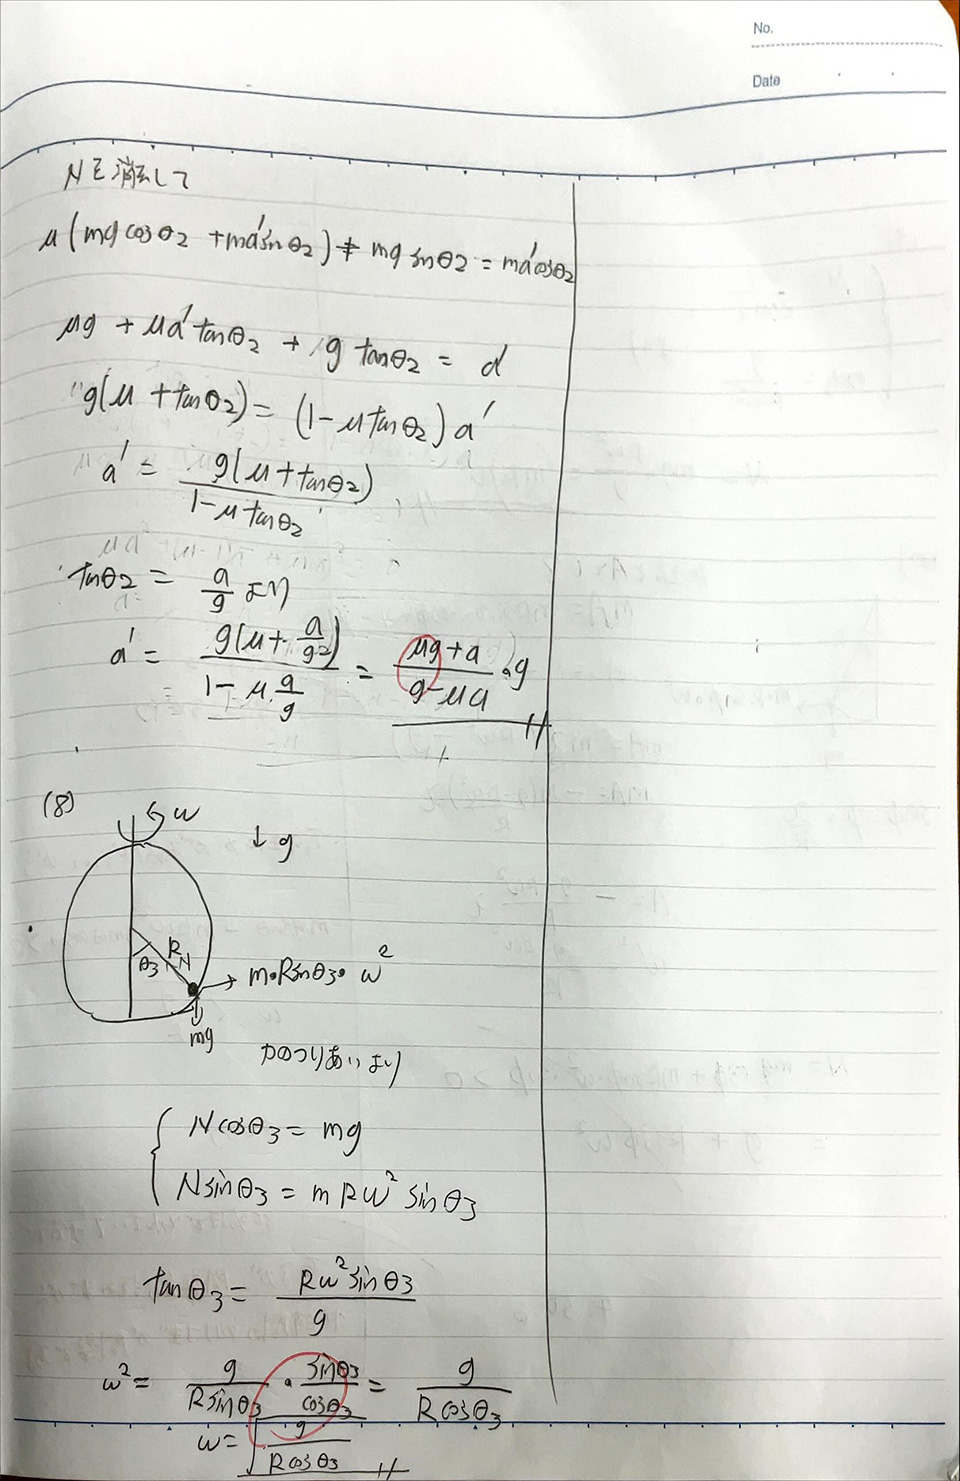 No.
Date
Nを消去して
μ(mg cosθ2 + ma' sinθ2) + mg sinθ2 = ma' cosθ2
μg + μa' tanθ2 + g tanθ2 = a'
g(μ + tanθ2) = (1 - μ tanθ2) a'
a' = g(μ + tanθ2) / 1 - μ tanθ2
tanθ2 = a/g より
a' = g(μ + a/g) / 1 - μ a/g = μg + a / g - μa · g
(8)
ω
↓ g
R
θ3
N
m・R sinθ3・ω²
mg
力のつりあいより
N cosθ3 = mg
N sinθ3 = m R ω² sinθ3
tanθ3 = Rω² sinθ3 / g
ω² = g / R sinθ3 · sinθ3 / cosθ3 = g / R cosθ3
ω = √ g / R cosθ3